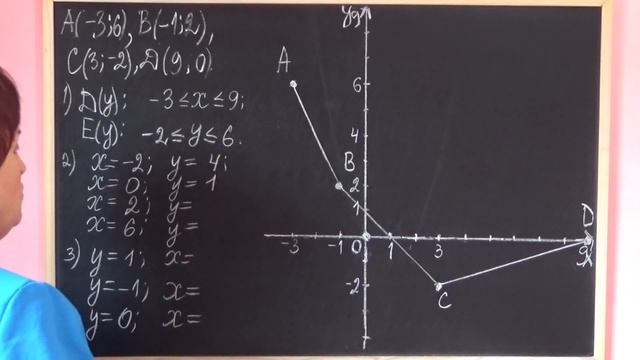 A(-3;6), B(-1;2),
C(3;-2), D(9;0)
1) D(y): -3≤x≤9;
E(y): -2≤y≤6.
2) x=-2; y=4;
x=0; y=1
x=2; y=
x=6; y=
3) y=1; x=
y=-1; x=
y=0; x=
y
A
6
4
B
2
1
-3 -1 0 1 3 9
D
x
-2
C